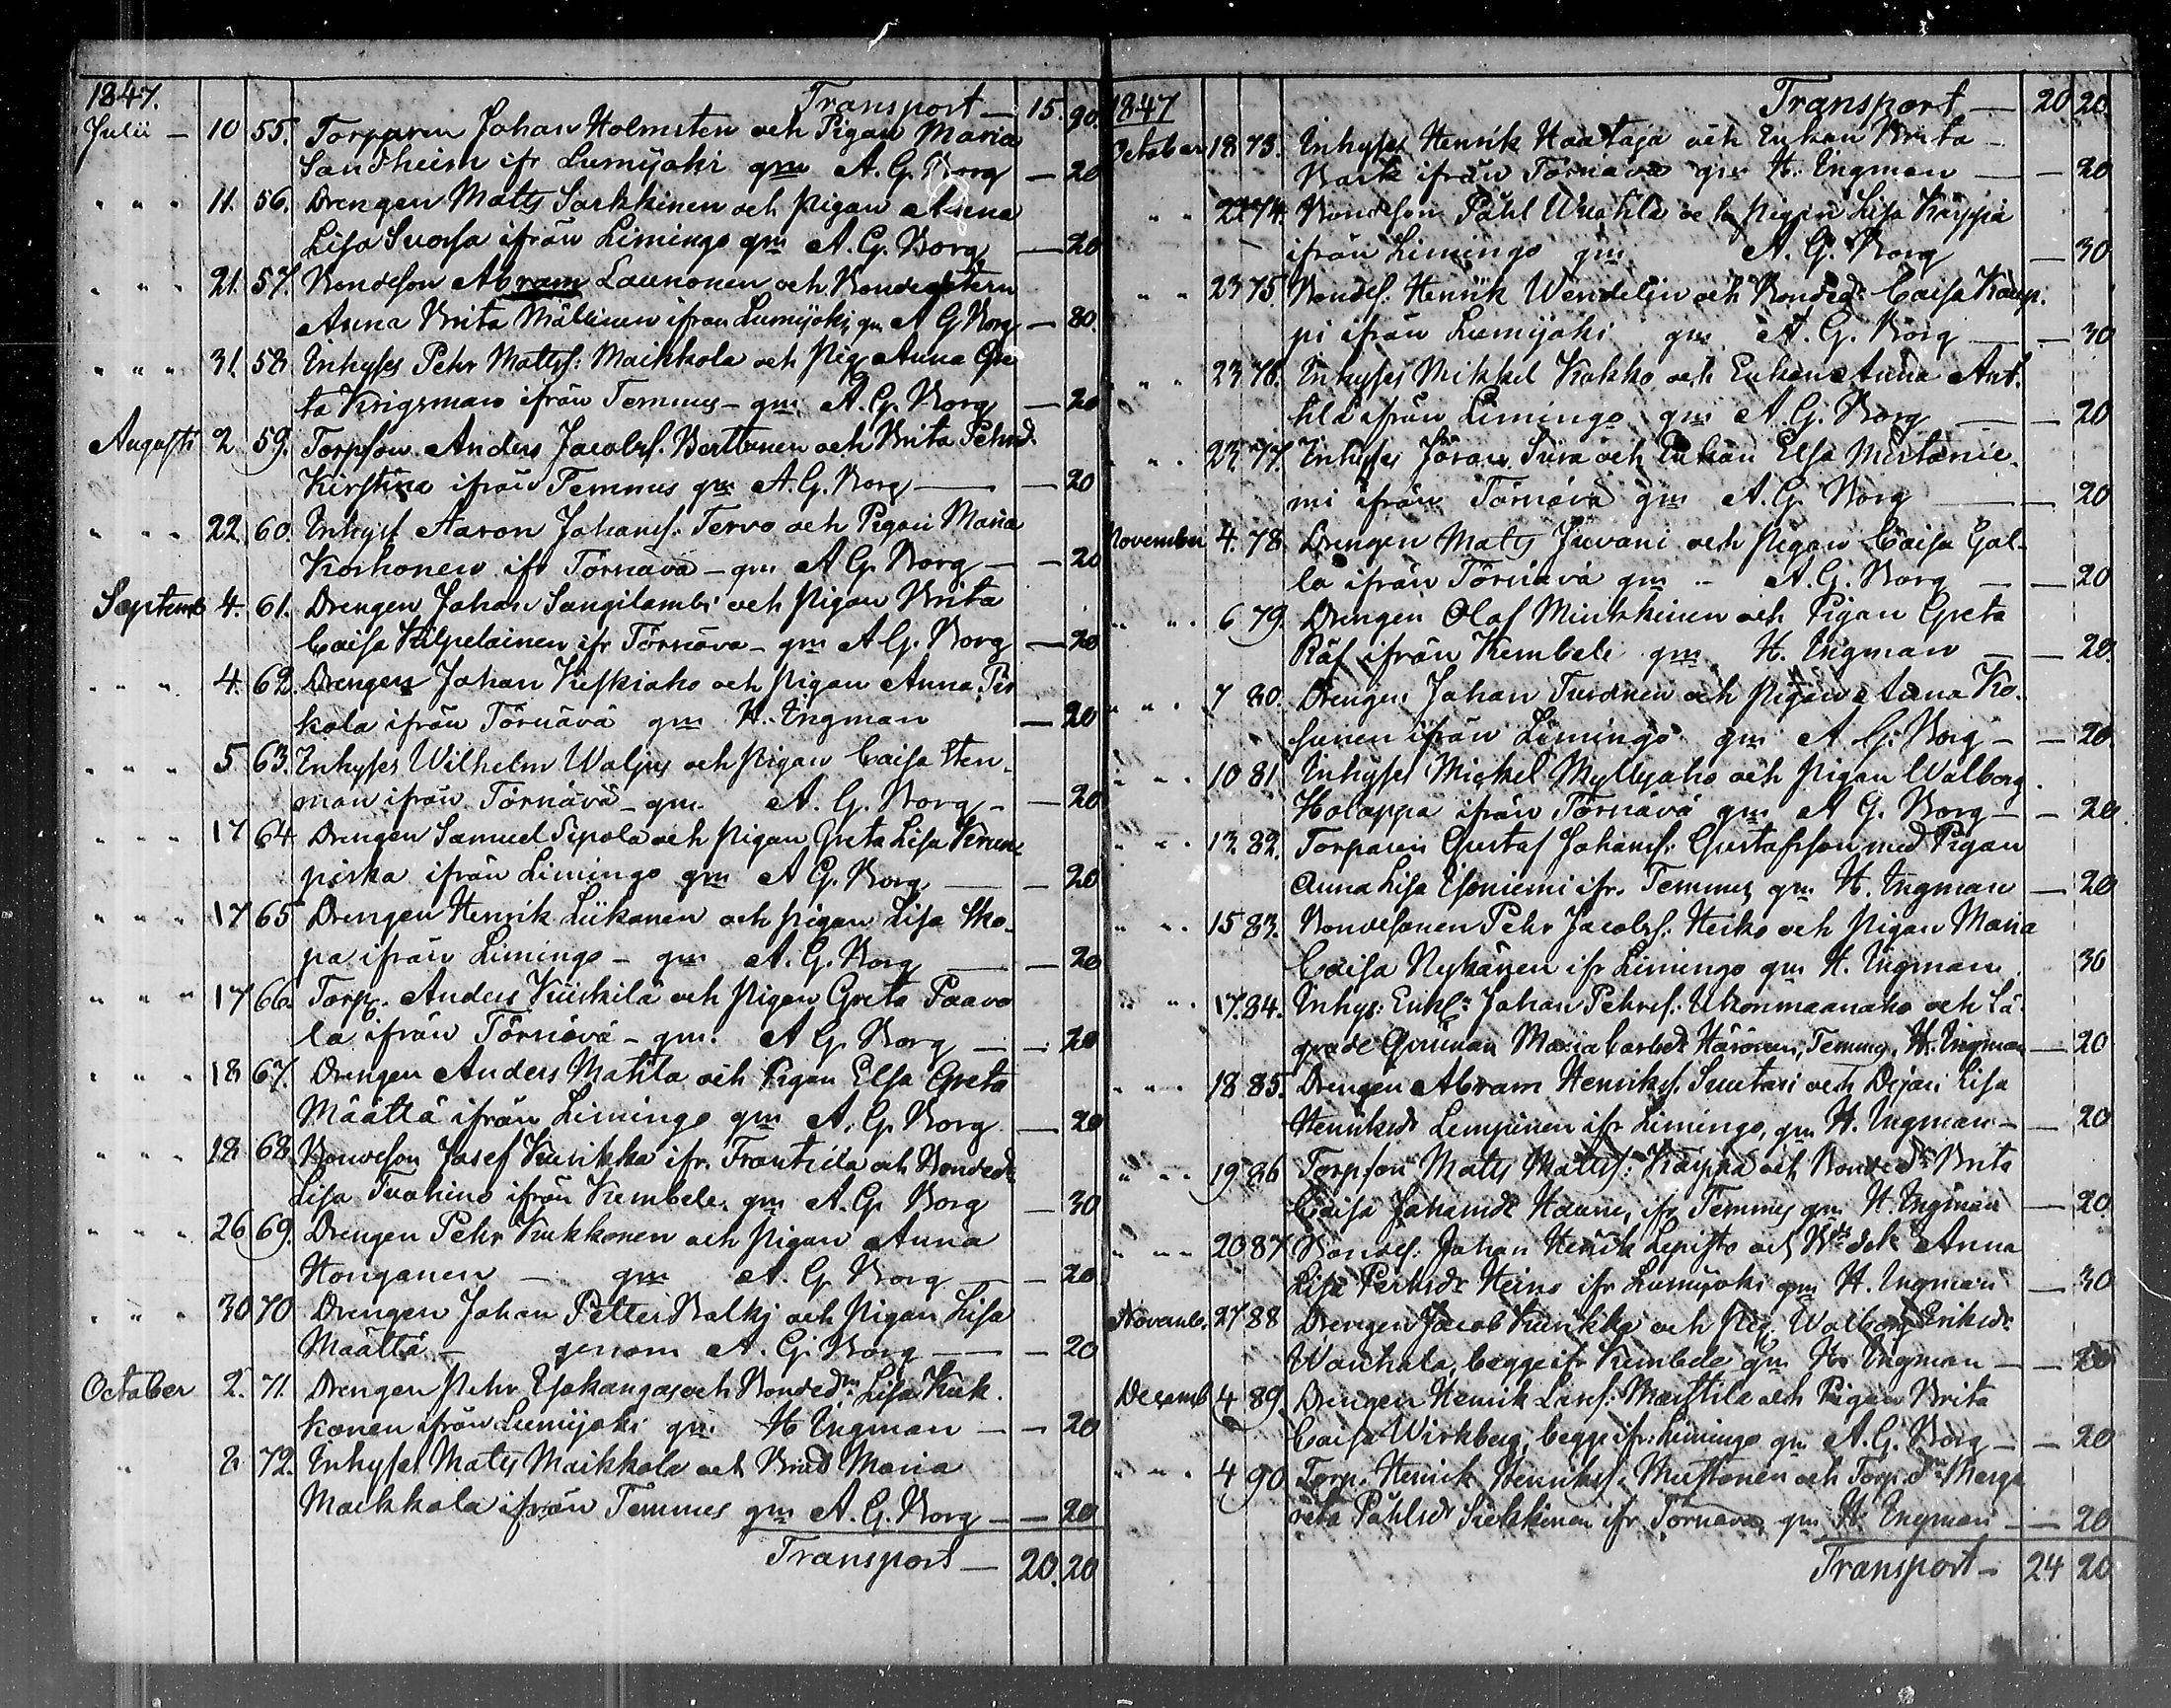 1847.
Transport — 15. 90.
Julii — 10 55. Torparen Johan Holmsten och Pigan Maria
Sandheim ifr Lumijoki gm A. G. Borg — 20
" " " 11. 56. Drengen Matts Sarkkinen och Pigan Anna
Lisa Suorsa ifrån Limingo gm A. G. Borg — 20
" " " 21. 57. Bondeson Abram Launonen och Bondedottern
Anna Brita Mällinen ifrån Lumijoki gm A G Borg — 30.
" " " 31. 58 Inhyses Pehr Mattss: Maikkola och Pig. Anna Gre
ta Krigsman ifrån Temmes — gm A. G. Borg — 20
Augusti 2. 59. Torpson Anders Jacobss. Berttunen och Brita Pehrsd.
Kirstina ifrån Temmes gm A. G. Borg — 20
" " " 22. 60. Inhyss Aaron Johanss. Tervo och Pigan Maria
Korhonen ifr Törnävä — gm A G. Borg — 20
Septemb 4. 61. Drengen Johan Sangilambi och Pigan Brita
Caisa Kilpeläinen ifr Törnävä — gm A G. Borg — 20
" " " 4. 62. Drengen Johan Keskiaho och Pigan Anna Pir
kola ifrån Törnävä gm H. Ingman — 20
" " " 5 63. Inhyses Wilhelm Waljus och Pigan Caisa Sten-
man ifrån Törnävä — gm A. G. Borg — 20
" " " 17 64. Drengen Samuel Sipola och Pigan Greta Lisa
piska ifrån Limingo gm A G. Borg — 20
" " " 17 65 Drengen Henrik Liikanen och Pigan Lisa Sko-
pa ifrån Limingo — gm A. G. Borg — 20
" " " 17 66. Torp. Anders Kiiskilä och Pigan Greta Paavo
la ifrån Törnävä — gm. A G. Borg — 20
" " " 18 67. Drengen Anders Mattila och Pigan Elsa Greta
Määttä ifrån Limingo gm A. G. Borg — 20
" " " 18 68. Bondeson Josef Kurikka ifr. Frantsila och Bonded.
Lisa Tuohino ifrån Kembele gm A. G. Borg — 30
" " " 26 69. Drengen Pehr Kukkonen och Pigan Anna
Honganen — gm A. G. Borg — 20
" " " 30 70 Drengen Johan Petter Balkj och Pigan Lisa
Määttä — genom A. G. Borg — 20
October 2. 71. Drengen Pehr Ylikangas och Bonded. Lisa Kuk.
konen ifrån Lumijoki gm H Ingman — 20
" 2 72. Inhyses Mats Maikkola och Maria
Maikkola ifrån Temmes gm A. G. Borg — 20
Transport — 20. 20
1847
Transport — 20 20.
October 18 73. Inhyses Henrik Haataja och Enkan Brita —
Bark ifrån Törnävä gm H. Ingman — 20
" " 22 74. Bondeson Påhl Wuohila och Pigan Lisa Käppä
ifrån Limingo gm A. G. Borg — 30
" " 23 75. Bondes. Henrik Wendelin och Bonded. Caisa Kaup.
pi ifrån Lumijoki gm A. G. Borg — 30
" " 23 76. Inhyses Mikkel Kokko och Enkan Anna Ant.
tila ifrån Limingo gm A. G. Borg — 20
" " 23 77. Inhyses Jöran Sura och Enkan Elsa Mustonie.
mi ifrån Törnävä gm A. G. Borg — 20
November 4. 78. Drengen Mats Juvani och Pigan Caisa Gal-
la ifrån Törnävä gm A. G. Borg — 20
" " 6 79. Drengen Olof Minkkinen och Pigan Greta
Räf ifrån Kembele gm H. Ingman — 20.
" " 7 80. Drengen Johan Turunen och Pigan Anna Ko-
sunen ifrån Limingo gm A. G. Borg — 20.
" " 10 81. Inhyses Mickel Myllyaho och Pigan Walborg
Holappa ifrån Törnävä gm A G. Borg — 20.
" " 13 82. Torparen Gustaf Johanss: Gustafsson med Pigan
Anna Lisa Isoniemi ifr. Temmes gm H. Ingman — 20
" " 15 83. Bondesonen Pehr Jacobss. Heiko och Pigan Maria
Caisa Nykänen ifr Limingo gm H. Ingman 30
" " 17. 84. Inhys: Enkl: Johan Pehrss: Utkonmaanaho och Lä-
grade Qvinnan Maria Carlsdr Härönen, Temmes, H. Ingman — 20
" " 18 85. Drengen Abram Henrikss. Suutari och Pigan Lisa
Henriksdr Lempinen ifr Limingo, gm H. Ingman — 20
" " 19 86 Torpson Matts Mattss: Käppä och Bonded. Brita
Caisa Johansdr Hannu, ifr Temmes gm H. Ingman — 20
" " 20 87. Bondes: Johan Henrik Lepistö och Anna
Lisa Pehrsdr Heino ifr Lumijoki gm H. Ingman — 30
Novemb. 27 88 Drengen Jacob Kurikka och Pig. Walborg Eriksdr
Wanhala, begge ifr Kembele gm H. Ingman — 20
Decemb 4 89. Drengen Henrik Larss: Marttila och Pigan Brita
Caisa Wirkberg, begge ifr: Limingo gm A. G. Borg — 20
" " 4 90 Torp. Henrik Henrikss. Mustonen och Torp.dr Marga
reta Påhlsdr Siekkinen ifr Törnävä, gm H Ingman — 20
Transport — 24 20